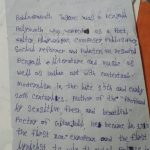 Rabindranath Tagore was a Bengali
Polymath who worked as a Poet
writer, Playwright, Composer, Philosopher
Social reformer and Painter. He reshaped
Bengali literature and music as
well as Indian art with contextual
modernism in the late 19th and early
20th centuries. Author of the
sensitive, fresh and beautiful
Poetry of Gitanjali he became in 1913
the first non-European and the first